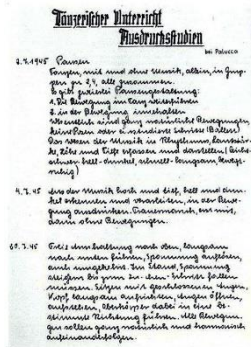 Tänzerischer Unterricht
Ausdrucksstudien
bei Palucca
2.7.1945 Pausen
Tanzen, mit und ohne Musik, allein, in Grup-
pen zu 2,4, alle zusammen.
Es gibt zweierlei Pausengestaltung:
1. Die Bewegung im Tanz weiterführen
2. in der Bewegung innehalten.
Wesentlich sind ganz natürliche Bewegungen,
keine Posen oder einstudierte Schritte (Ballett)
Das Wesen der Musik in Rhythmus, Lautstär-
ke, Höhe und Tiefe erfassen und darstellen
hell-dunkel, schnell-langsam,
4.7.45 Aus der Musik hoch und tief, hell und dun-
kel erkennen und verarbeiten, in der Bewe-
gung ausdrücken. Erst mit,
dann ohne Bewegungen.
nach oben, langsam
nach unten führen, Spannung auflösen,
auch umgekehrt. Im Stand, Spannung
steigern bis zum
müssen. Sitzen mit geschlossenen Augen,
Kopf langsam aufrichten, Augen öffnen,
aufstehen, Oberkörper dabei in eine be-
stimmte Richtung führen. Alle Bewegun-
gen sollen ganz natürlich und harmonisch
aufeinanderfolgen.